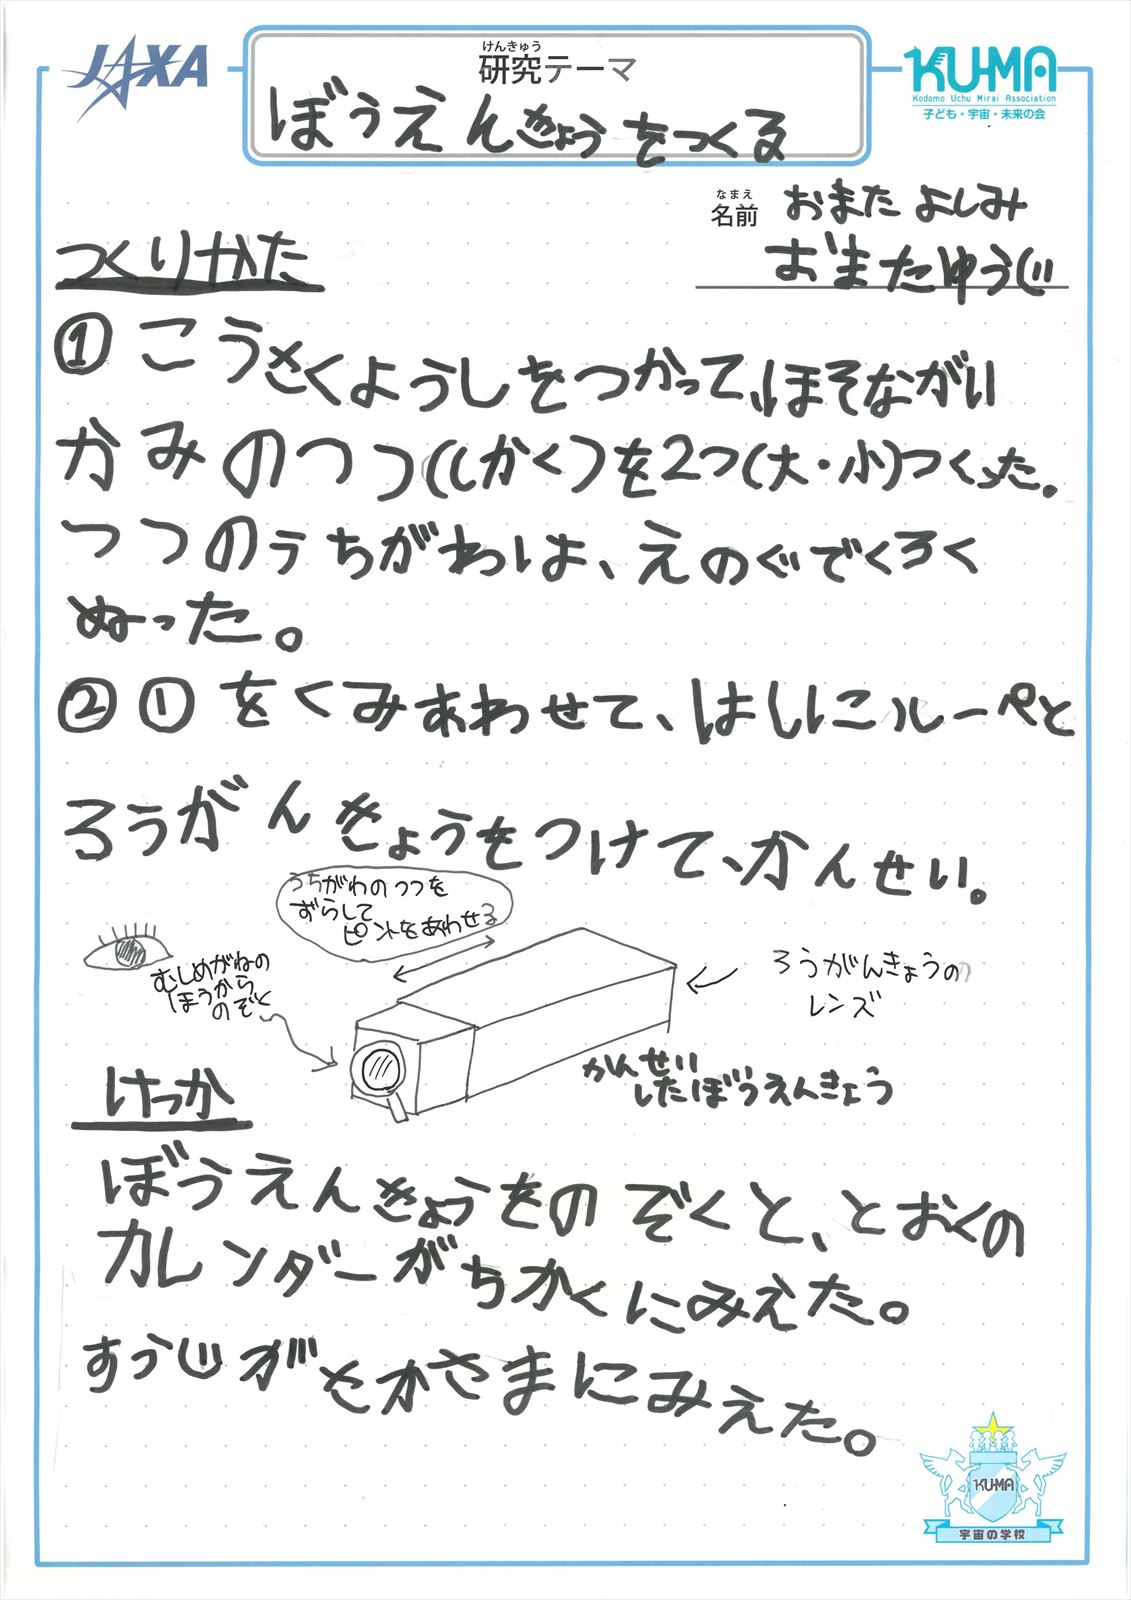 JAXA
けんきゅう
研究テーマ
ぼうえんきょうをつくる
KU-MA
Kodomo Uchu Mirai Association
子ども・宇宙・未来の会
なまえ
名前
おまた よしみ
おまたゆうじ
つくりかた
① こうさくようしをつかって、ほそながい
かみのつつ(しかく)を2つ(大・小)つくった。
つつのうちがわは、えのぐでくろく
ぬった。
② ①をくみあわせて、はしにルーペと
ろうがんきょうをつけて、かんせい。
うちがわのつつを
ずらして
ピントをあわせる
むしめがねの
ほうから
のぞく
ろうがんきょうの
レンズ
かんせい
したぼうえんきょう
けっか
ぼうえんきょうをのぞくと、とおくの
カレンダーがちかくにみえた。
すうじがさかさまにみえた。
KU-MA
宇宙の学校